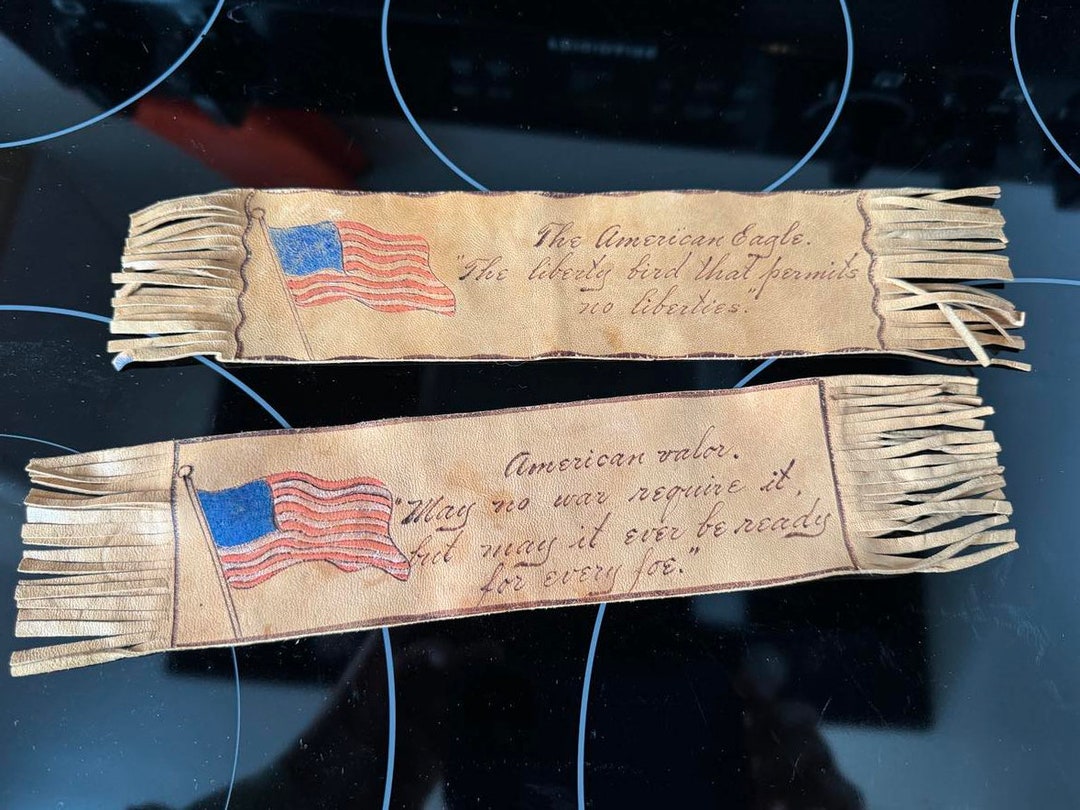 The American Eagle.
"The liberty bird that permits
no liberties."
American valor.
"May no war require it,
but may it ever be ready
for every foe."